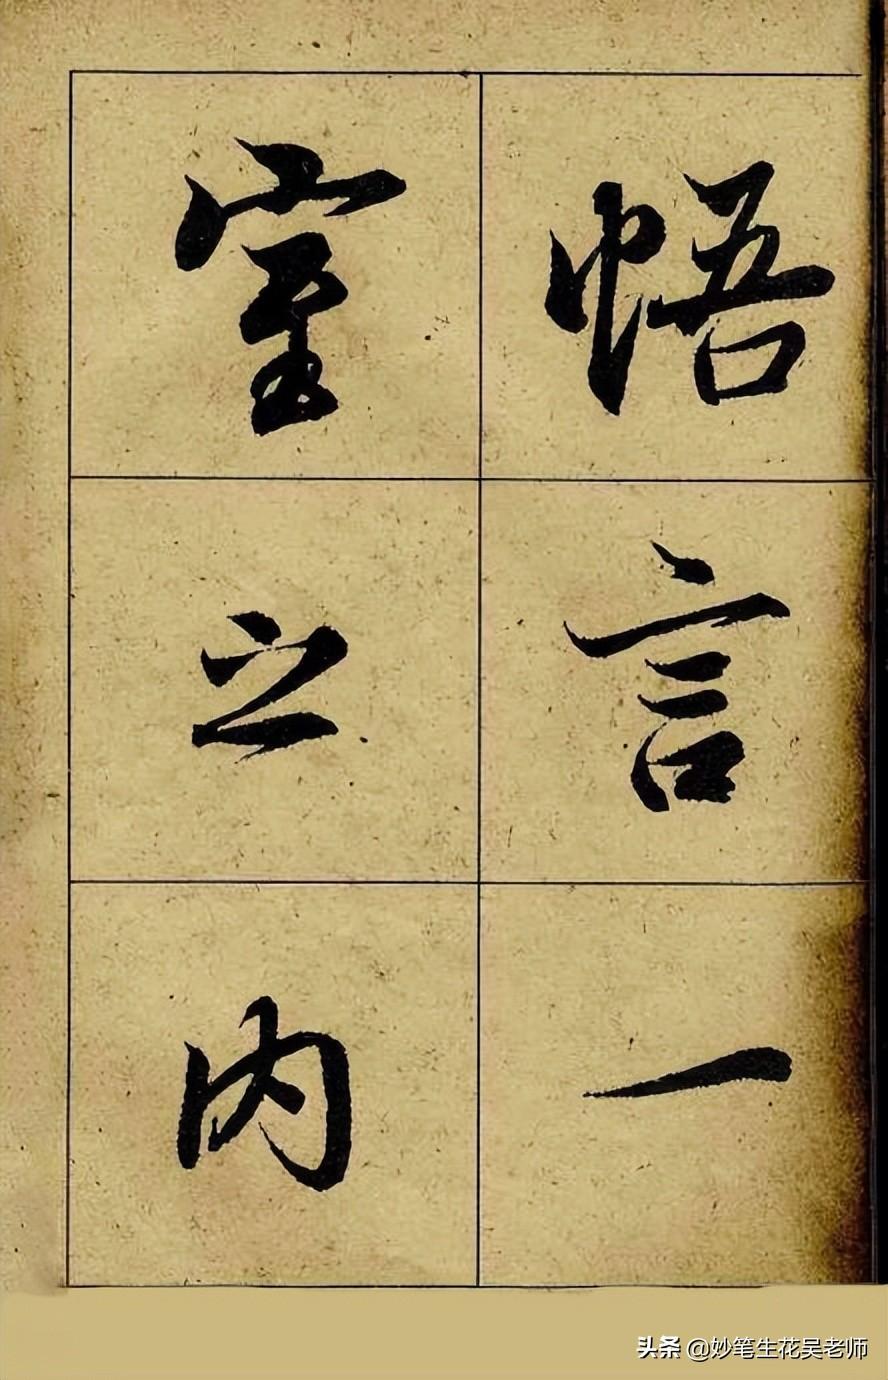 悟言一
室之内
头条 @妙笔生花吴老师